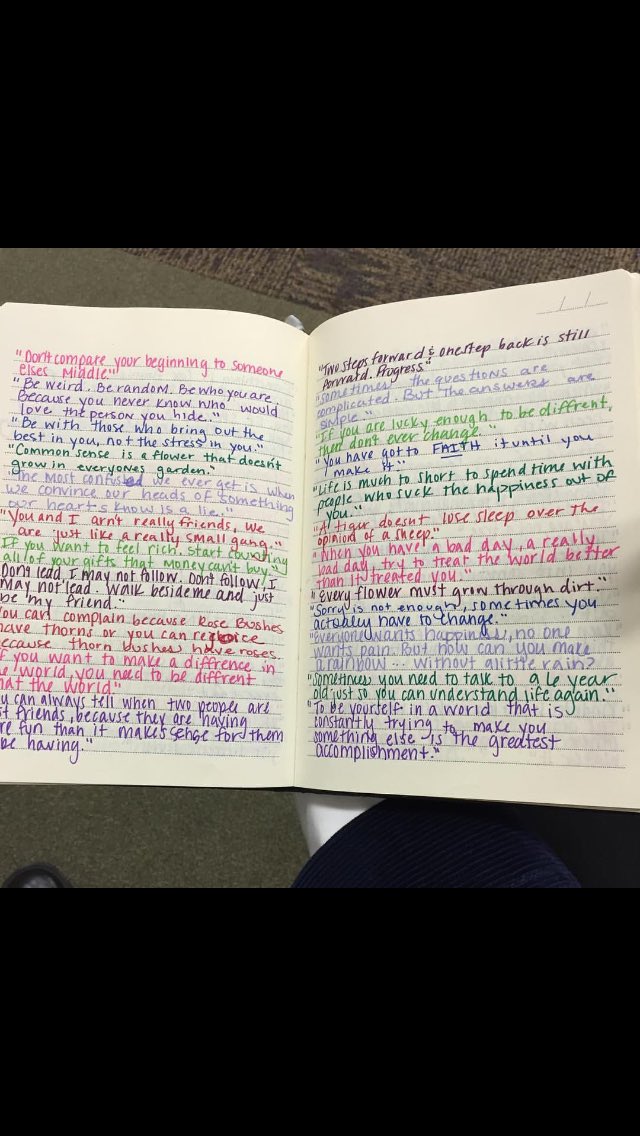 "Don't compare your beginning to someone
elses Middle"
"Be weird. Be random. Be who you are.
Because you never know who would
love the person you hide."
"Be with those who bring out the
best in you, not the stress in you."
"Common sense is a flower that doesn't
grow in everyones garden."
"The most confused we ever get is when
we convince our heads of something
our hearts know is a lie."
"You and I arn't really friends, we
are just like a really small gang."
If you want to feel rich, start counting
all of your gifts that money can't buy."
Dont lead, I may not follow. Dont follow, I
may not lead. Walk beside me and just
be my friend."
ou can complain because Rose Bushes
have thorns or you can rejoice
ecause thorn bushes have roses.
f you want to make a diffrence in
e world, you need to be diffrent
hat the world"
u can always tell when two people are
st friends, because they are having
re fun than it makes sense for them
be having."
"Two steps forward & one step back is still
Forward. Progress."
"sometimes the questions are
complicated. But the answers are
simple."
"If you are lucky enough to be diffrent,
then don't ever change."
"You have got to FAITH it until you
make it"
"Life is much to short to spend time with
people who suck the happiness out of
you."
"A tigur doesnt lose sleep over the
opinion of a sheep."
"When you have a bad day, a really
bad day, try to treat the world better
than it treated you."
"Every flower must grow through dirt."
"Sorry is not enough, sometimes you
actually have to change."
"Everyone wants happiness, no one
wants pain. But how can you make
a rainbow... without a little rain?
"Sometimes you need to talk to a 6 year
old just so you can understand life again."
"To be yourself in a world that is
constantly trying to make you
something else is the greatest
accomplishment."